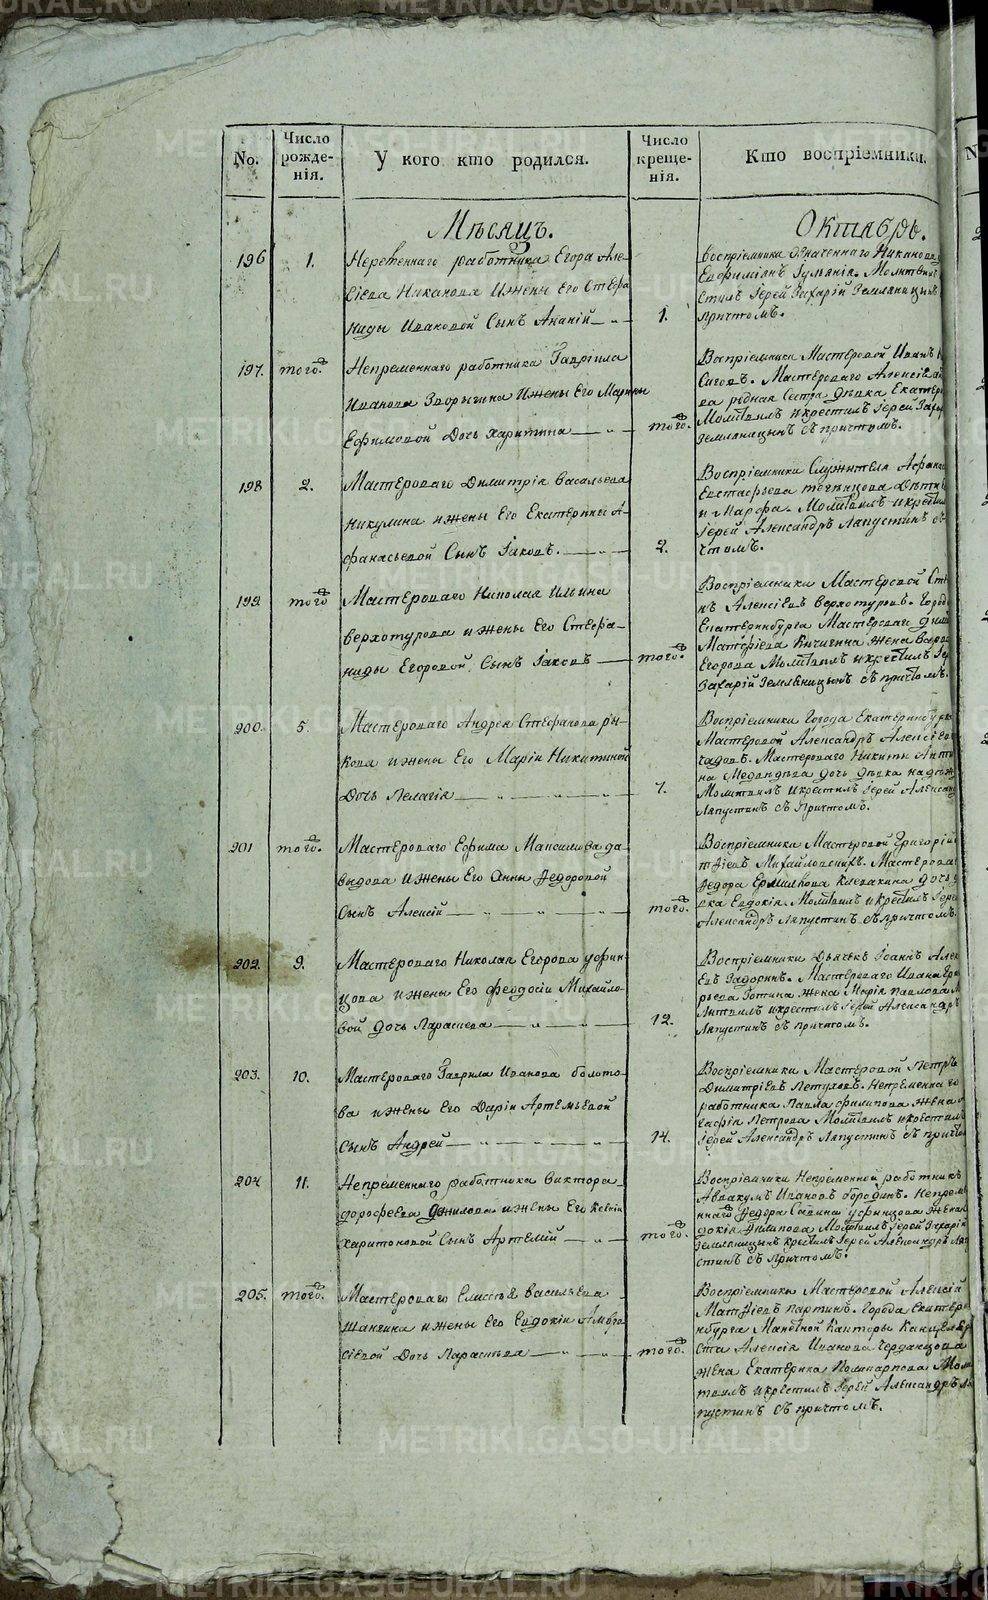 No.
Число рожде-нія.
У кого кто родился.
Число креще-нія.
Кто воспріемники.
Мѣсяцъ.
Октябрь.
196
1.
работника Егора Але-
сіева Никанова и жены Его Стефа
ниды Ивановой Сынъ Ананій
1.
воспріемники Означеннаго Никанова
Іуліанія. Молитвил
стилъ Іерей Захарій Земляницынъ
причтомъ.
197.
того
Непременнаго работника Гавріила
Иванова Зворыгина и жены Его Марины
Ефимовой Дочь Харитина
того.
Воспріемники Мастеровой Иванъ
Мастероваго Алексіева
ва родная Сестра дѣвка Екатер
Молитвилъ и крестилъ Іерей Зах
Земляницынъ съ причтомъ.
198
2.
Мастероваго Димитрія Васильева
Никулина и жены Его Екатерины А-
фанасьевой Сынъ Іаковъ.
2.
Воспріемники Служителя Афана
Евстафьева
и Марфа. Молитвилъ и крестил
Іерей Александръ Ляпустинъ съ
чтомъ.
199.
того
Мастероваго Николая Ильина
верхотурова и жены Его Стефа-
ниды Егоровой. Сынъ Іаковъ
того.
Воспріемники Мастеровой Сте
нъ Алексіевъ верхотуровъ. Города
Екатеринбурга Мастероваго
Матфіева Кичигина жена Варва
Егорова Молитвилъ и крестилъ Іер
Захарій Земляницынъ съ причтомъ.
200.
5.
Мастероваго Андрея Стефанова ры-
кова и жены Его Маріи Никитиной
Дочь Пелагія
7.
Воспріемники Города Екатеринбур
Мастеровой Александръ Алексіев
Мастероваго Никиты Анто
на Медведева дочь дѣвка надежд
Молитвилъ и крестилъ Іерей Алексан
Ляпустинъ съ Причтомъ.
201
того.
Мастероваго Ефима Максимова да-
выдова и жены Его Анны Федоровой
Сынъ Алексій
того.
Воспріемники Мастеровой Григорій
тфіевъ Михайловскихъ. Мастерова
Федора Ермилова Клевакина дочь
вка Евдокія. Молитвилъ и крестилъ Іере
Александръ Ляпустинъ съ причтомъ.
202.
9.
Мастероваго Николая Егорова уфин-
цова и жены Его феодосіи Михайло-
вой дочь Параскева
12.
Воспріемники Дьячекъ Іоаннъ Алек
евъ Задоринъ. Мастероваго Ивана Гри
рьева Готина жена Марія Павлова М
литвилъ и крестилъ Іерей Александръ
Ляпустинъ съ причтомъ.
203.
10.
Мастероваго Гаврила Иванова болото-
ва и жены Его Даріи Артемьевой
Сынъ Андрей
14.
Воспріемники Мастеровой Петръ
Димитріевъ Петуховъ. Непременнаго
работника Павла филипова жена
Петрова Молитвилъ и крестилъ
Іерей Александръ Ляпустинъ съ причто
204
11.
Непременнаго работника Виктора
дорофеева и жены Его Ксеніи
Харитоновой Сынъ Артемій
того.
Воспріемники Непременной работникъ
Аввакумъ Ивановъ бородинъ. Непреме
ннаго Федора Савина уфинцова жена
докія Филипова Молитвилъ Іерей Захарій
Земляницынъ крестилъ Іерей Александръ Ляпу
стинъ съ Причтомъ.
205.
того.
Мастероваго Елисѣя Васильева
Шангина и жены Его Евдокіи Амвро
сіевой Дочь Параскева
того.
Воспріемники Мастеровой Алексій
Матфіевъ партинъ. Города Екатери
нбурга Монетной Канторы Канцеляри
ста Алексія Иванова Чердынцова
жена Екатерина Поликарпова Моли
твилъ и крестилъ Іерей Александръ Ля
пустинъ съ причтомъ.
METRIKI.GASO-URAL.RU